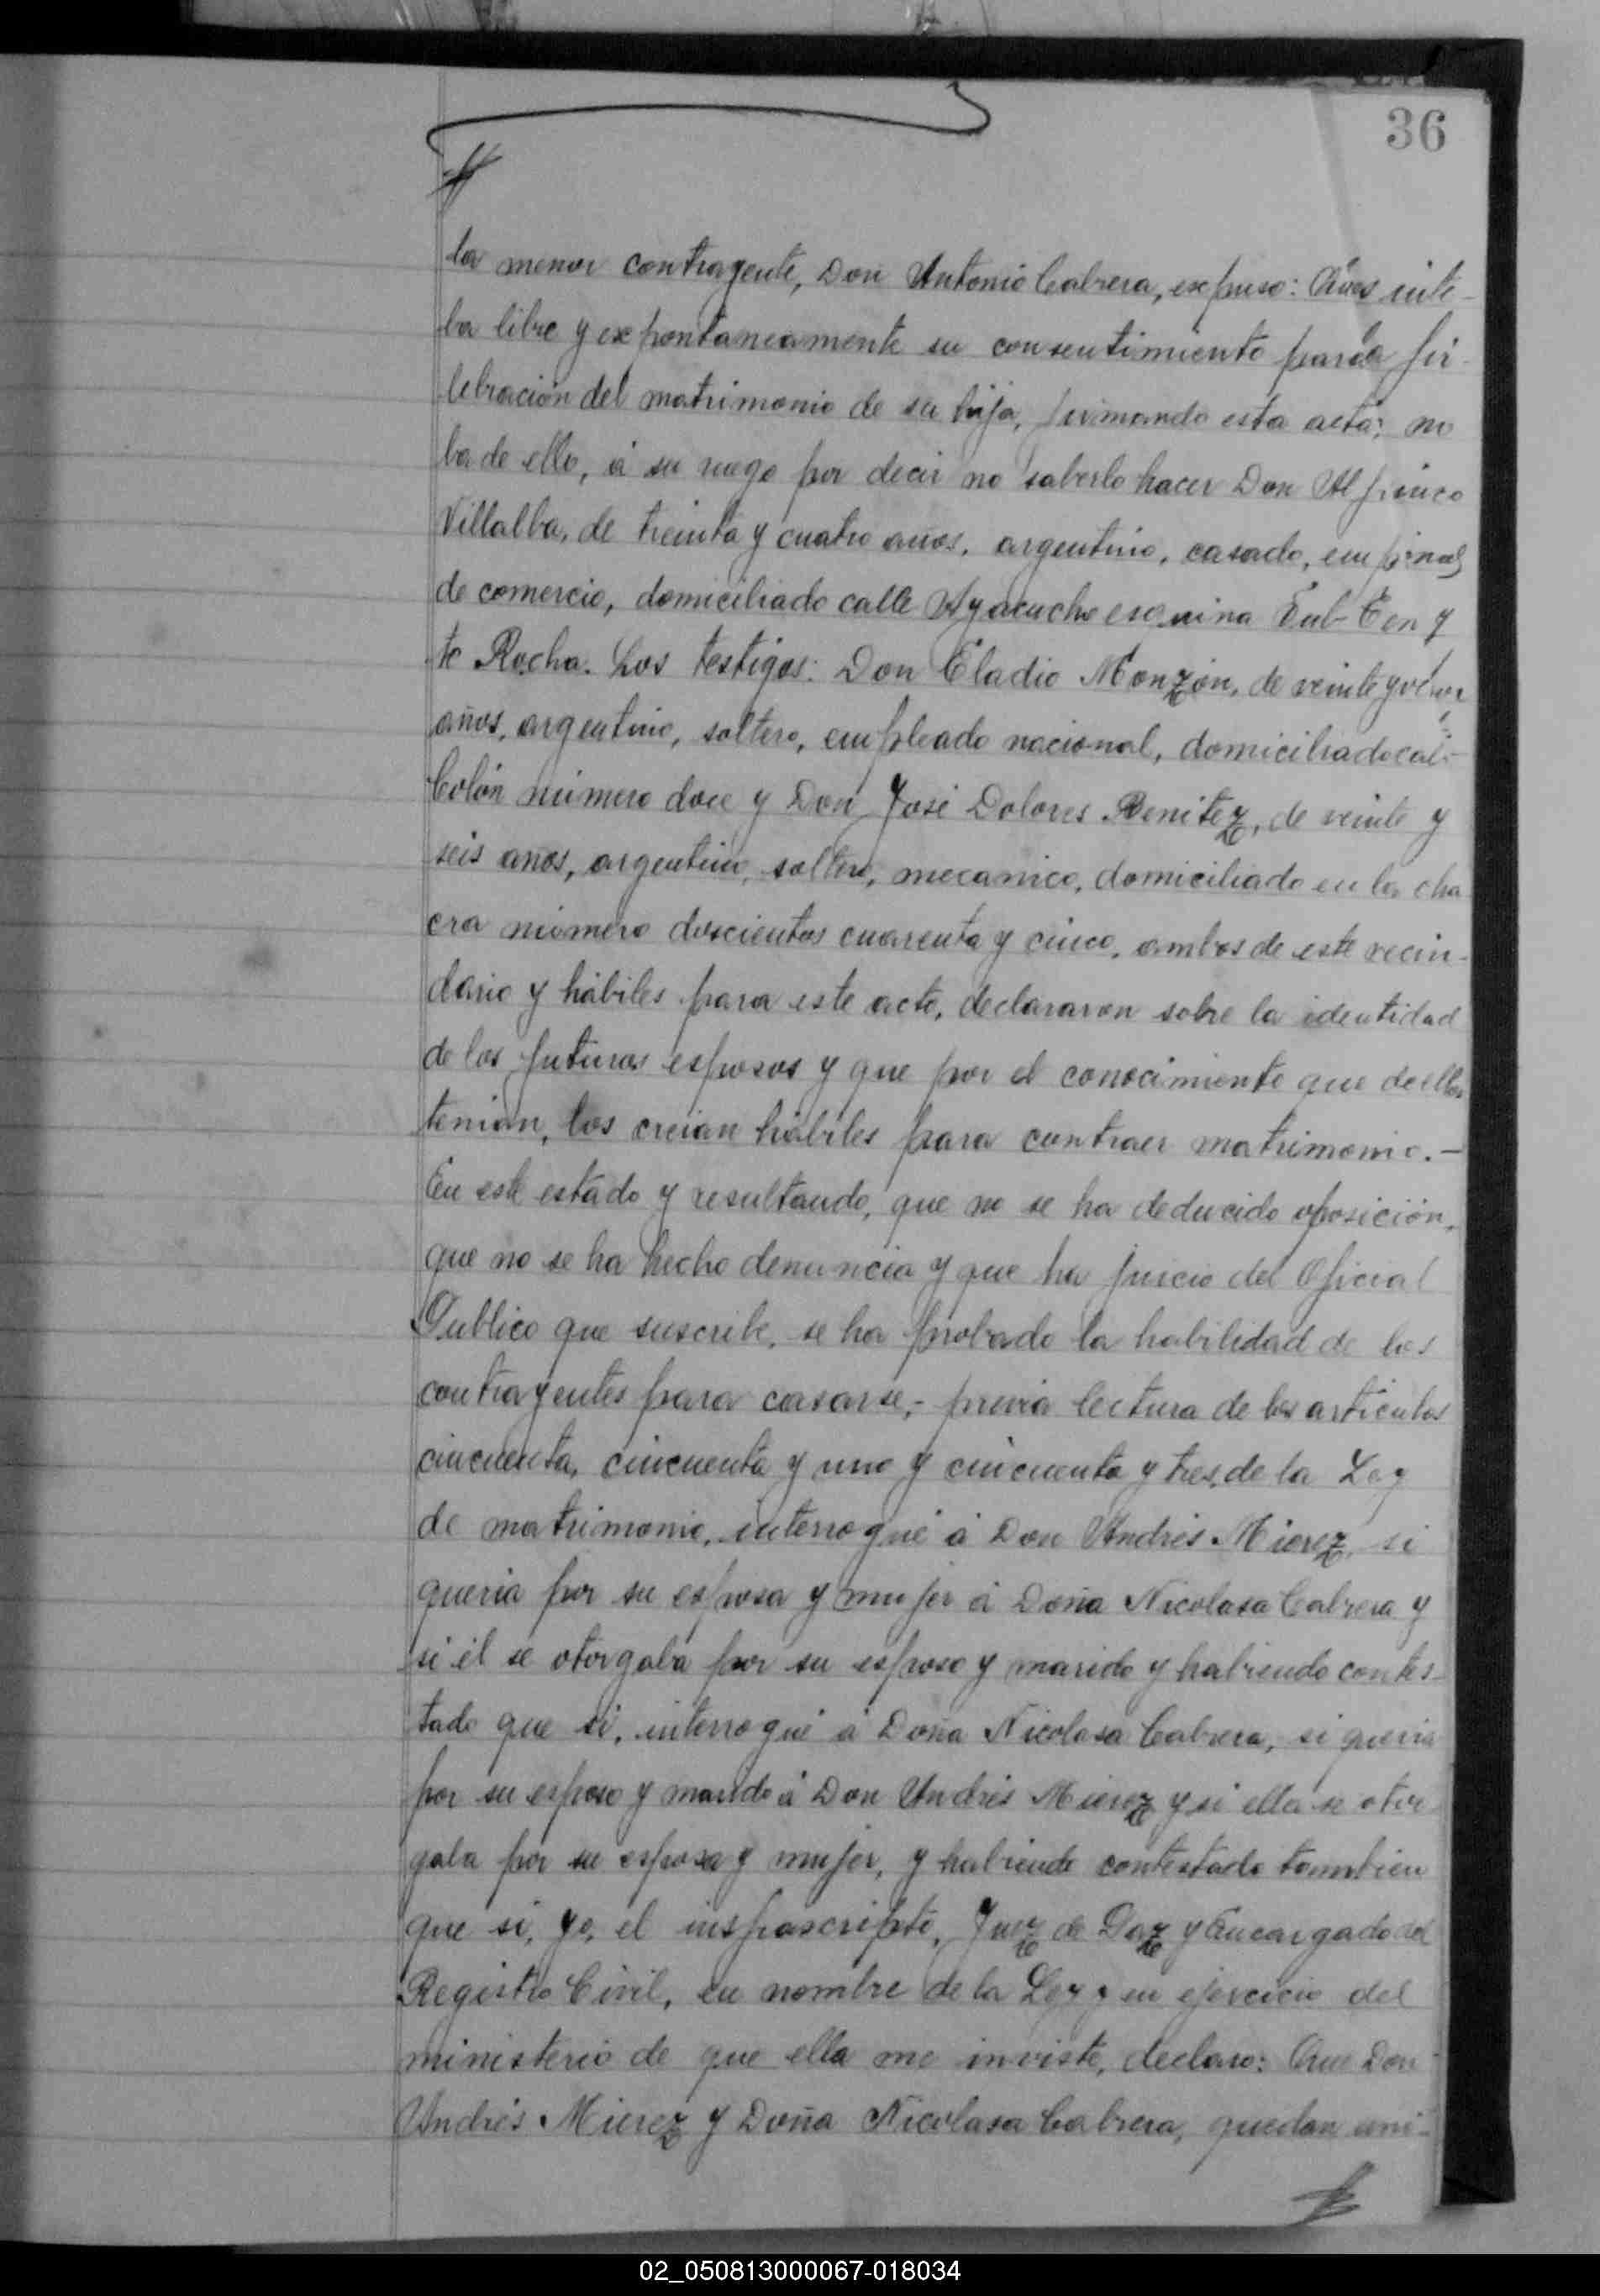 36
la menor contrayente, Don Antonio Cabrera, expuso: Que
ba libre y expontaneamente su consentimiento para
lebración del matrimonio de su hija, firmando esta acta;
ba de ello, á su ruego por decir no saberlo hacer Don
Villalba, de treinta y cuatro años, argentino, casado,
de comercio, domiciliado calle Ayacucho esquina Sub-Ten
te Rocha. Los testigos: Don Eladio Monzón, de veinte y
años, argentino, soltero, empleado nacional, domiciliado
Colón número doce y Don José Dolores Benitez, de veinte y
seis años, argentino, soltero, mecanico, domiciliado en la cha
cra número doscientos cuarenta y cinco, ambos de este vecin-
dario y hábiles para este acto, declararon sobre la identidad
de los futuros esposos y que por el conocimiento que de ellos
tenian, los creian hábiles para contraer matrimonio. —
En este estado y resultando, que no se ha deducido oposición,
que no se ha hecho denuncia y que ha juicio del Oficial
Publico que suscribe, se ha probado la habilidad de los
contrayentes para casarse,- previa lectura de los articulos
cincuenta, cincuenta y uno y cincuenta y tres, de la Ley
de matrimonio, interrogué á Don Andrés Mierez, si
queria por su esposa y mujer á Doña Nicolasa Cabrera y
si él se otorgaba por su esposo y marido y habiendo contes-
tado que si, interrogué á Doña Nicolasa Cabrera, si queria
por su esposo y marido á Don Andrés Mierez y si ella se otor
gaba por su esposa y mujer, y habiendo contestado tambien
que si, yo, el inspascripto, Juez de Paz y Encargado del
Registro Civil, en nombre de la Ley y en ejercicio del
ministerio de que ella me inviste, declaro: Que Don
Andrés Mierez y Doña Nicolasa Cabrera, quedan uni-
02_050813000067-018034